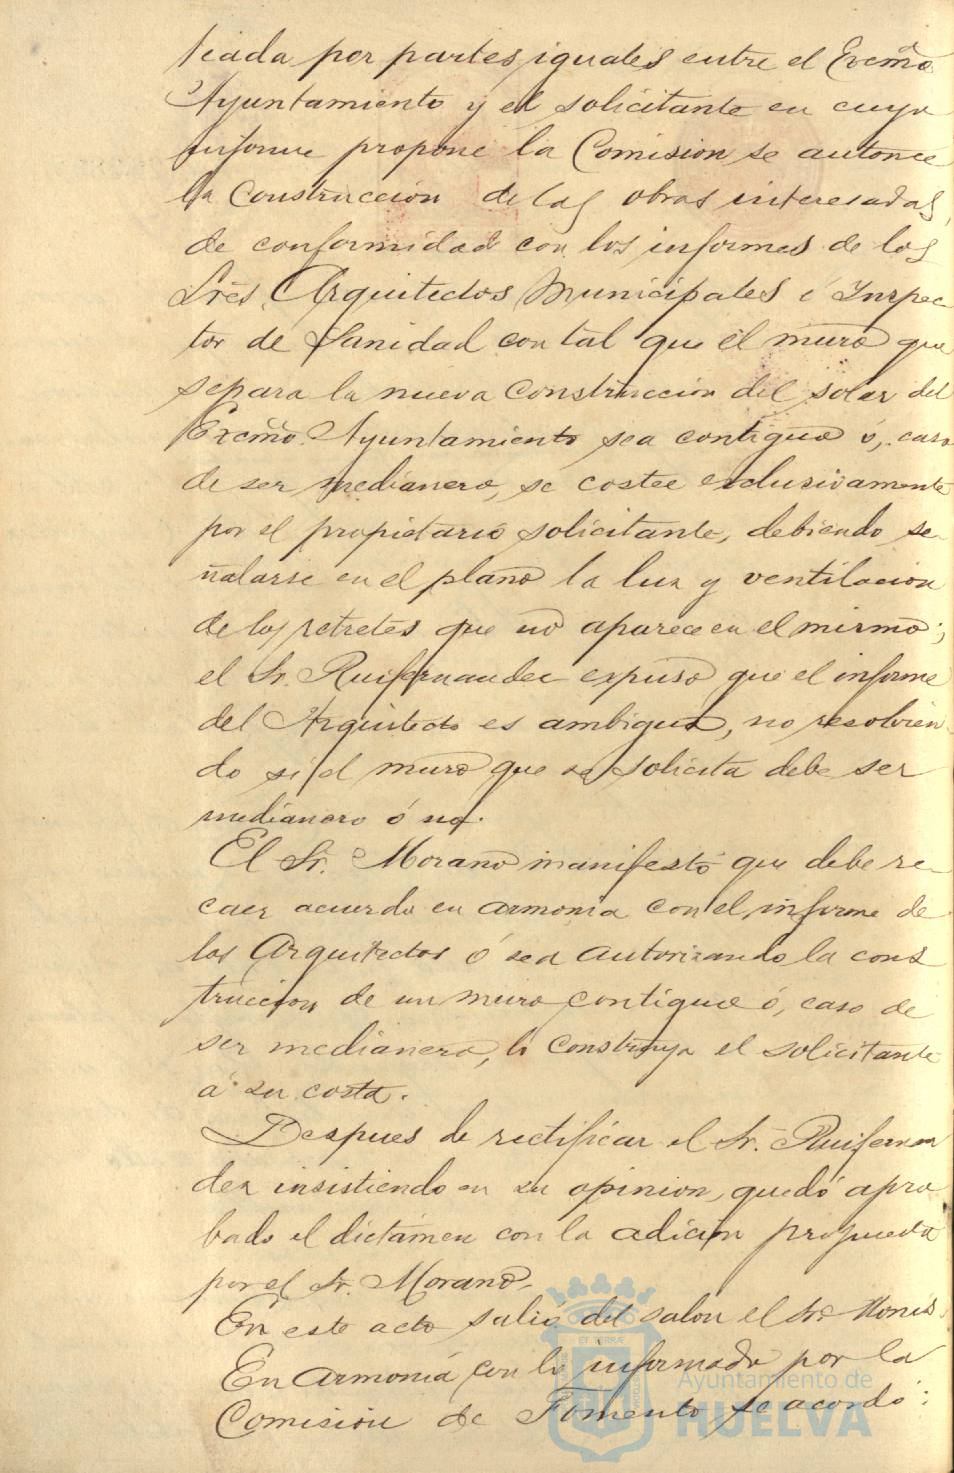 teada por partes iguales entre el Excmo.
Ayuntamiento y el solicitante en cuyo
informe propone la Comision se autorice
la Construccion de las obras interesadas,
de conformidad con los informes de los
Sres. Arquitectos Municipales é Inspec
tor de Sanidad con tal que el muro que
separa la nueva Construccion del solar del
Excmo. Ayuntamiento sea contiguo ó, caso
de ser medianero, se costee exclusivamente
por el propietario solicitante, debiendo se-
ñalarse en el plano la luz y ventilacion
de los retretes que no aparece en el mismo;
el Sr. Ruifernandez expuso que el informe
del Arquitecto es ambiguo, no resolvien-
do si el muro que se solicita debe ser
medianero ó no.
El Sr. Morano manifestó que debe re-
caer acuerdo en armonia con el informe de
los Arquitectos ó sea autorizando la cons
truccion de un muro contiguo ó, caso de
ser medianero, lo construya el solicitante
á su costa.
Despues de rectificar el Sr. Ruifernan
dez insistiendo en su opinion, quedó apro
bado el dictámen con la adicion propuesta
por el Sr. Morano.
En este acto salió del salon el Sr. Monis.
En armonia con lo informado por la
Comision de Fomento se acordó:
Ayuntamiento de
HUELVA